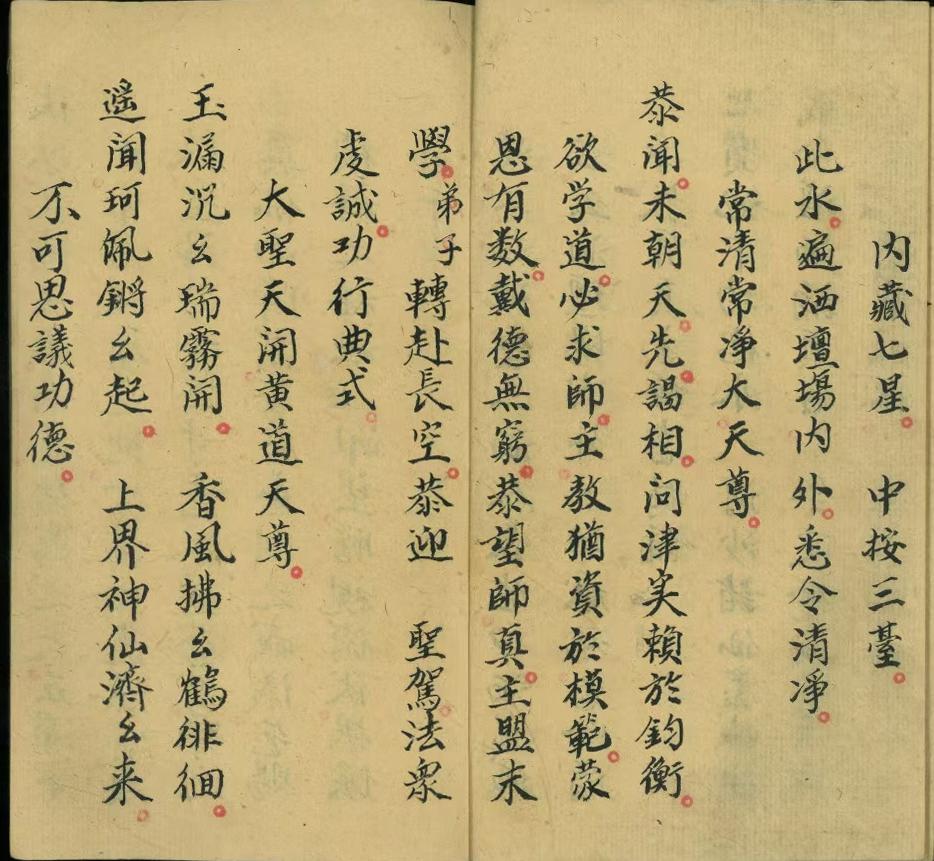 内藏七星。　中按三臺。
此水。遍洒壇場内外。悉令清淨。
常清常净大天尊。
恭闻未朝天。先謁相。问津实賴於鈞衡。
欲学道。必求師。主教猶資於模範。蒙
恩有数。戴德無窮。恭望師真。主盟末
學。弟子轉赴長空。恭迎　聖駕。法衆
虔誠。功行典式。
大聖天開黄道天尊。
玉漏沉幺瑞霧開。　香風拂幺鶴徘徊。
遥闻珂佩鏘幺起。　上界神仙濟幺来。
不可思議功德。